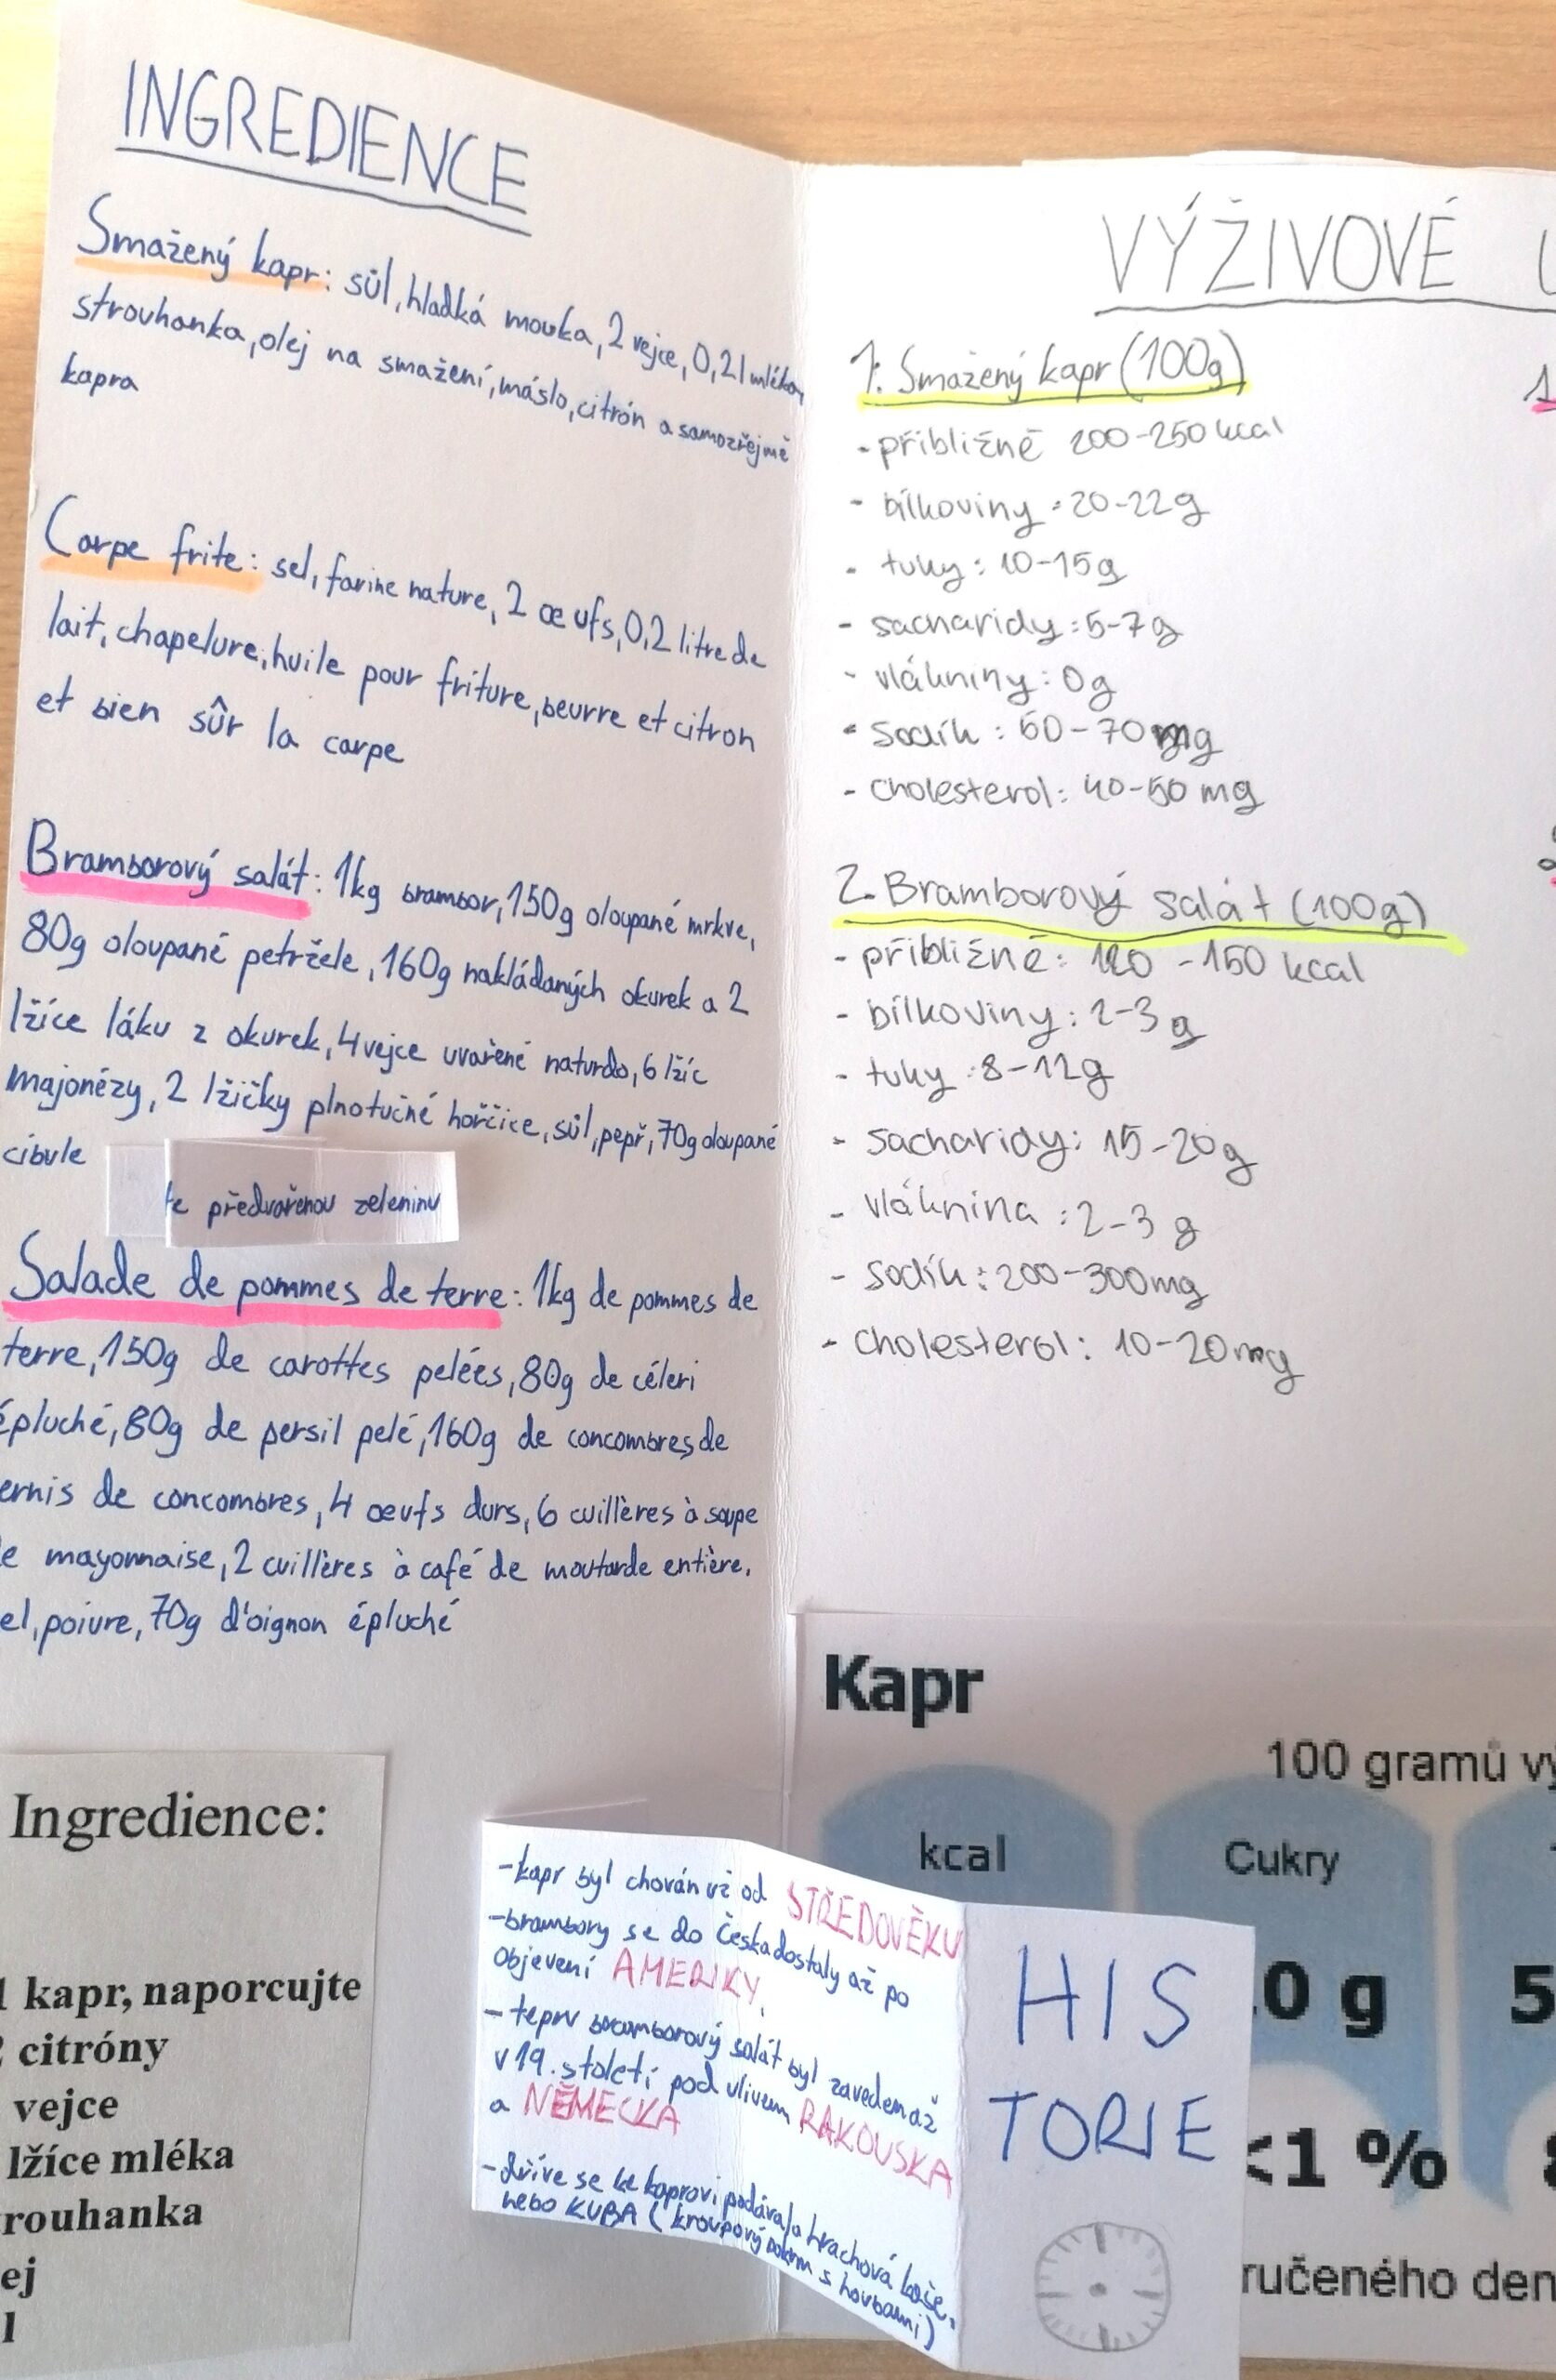 INGREDIENCE
Smažený kapr: sůl, hladká mouka, 2 vejce, 0,2l mléka,
strouhanka, olej na smažení, máslo, citrón a samozřejmě
kapra
Carpe frite: sel, farine nature, 2 œufs, 0,2 litre de
lait, chapelure, huile pour friture, beurre et citron
et bien sûr la carpe
Bramborový salát: 1kg brambor, 150g oloupané mrkve,
80g oloupané petržele, 160g nakládaných okurek a 2
lžíce láku z okurek, 4 vejce uvařené natvrdo, 6 lžic
majonézy, 2 lžičky plnotučné hořčice, sůl, pepř, 70g oloupané
cibule
te předvařenou zeleninu
Salade de pommes de terre: 1kg de pommes de
terre, 150g de carottes pelées, 80g de céleri
épluché, 80g de persil pelé, 160g de concombres de
ernis de concombres, 4 oeufs durs, 6 cuillères à soupe
e mayonnaise, 2 cuillères à café de moutarde entière.
el, poivre, 70g d'oignon épluché
Ingredience:
1 kapr, naporcujte
2 citróny
vejce
lžíce mléka
rouhanka
ej
l
VÝŽIVOVÉ
1. Smažený kapr (100g)
- přibližně 200-250 kcal
- bílkoviny: 20-22g
- tuky: 10-15g
- sacharidy: 5-7g
- vlákniny: 0g
- sodík: 60-70mg
- cholesterol: 40-50 mg
2. Bramborový salát (100g)
- přibližně: 120-150 kcal
- bílkoviny: 2-3g
- tuky: 8-12g
- sacharidy: 15-20g
- vláknina: 2-3 g
- sodík: 200-300mg
- cholesterol: 10-20mg
Kapr
100 gramů vý
kcal
Cukry
.0 g
5
<1 %
8
ručeného den
- kapr byl chován už od STŘEDOVĚKU
- brambory se do Česka dostaly až po
objevení AMERIKY.
- teprv bramborový salát byl zaveden až
v 19. století pod vlivem RAKOUSKA
a NĚMECKA
- dříve se ke kaprovi podávala hrachová kaše,
nebo KUBA (kroupový pokrm s houbami)
HIS
TORIE